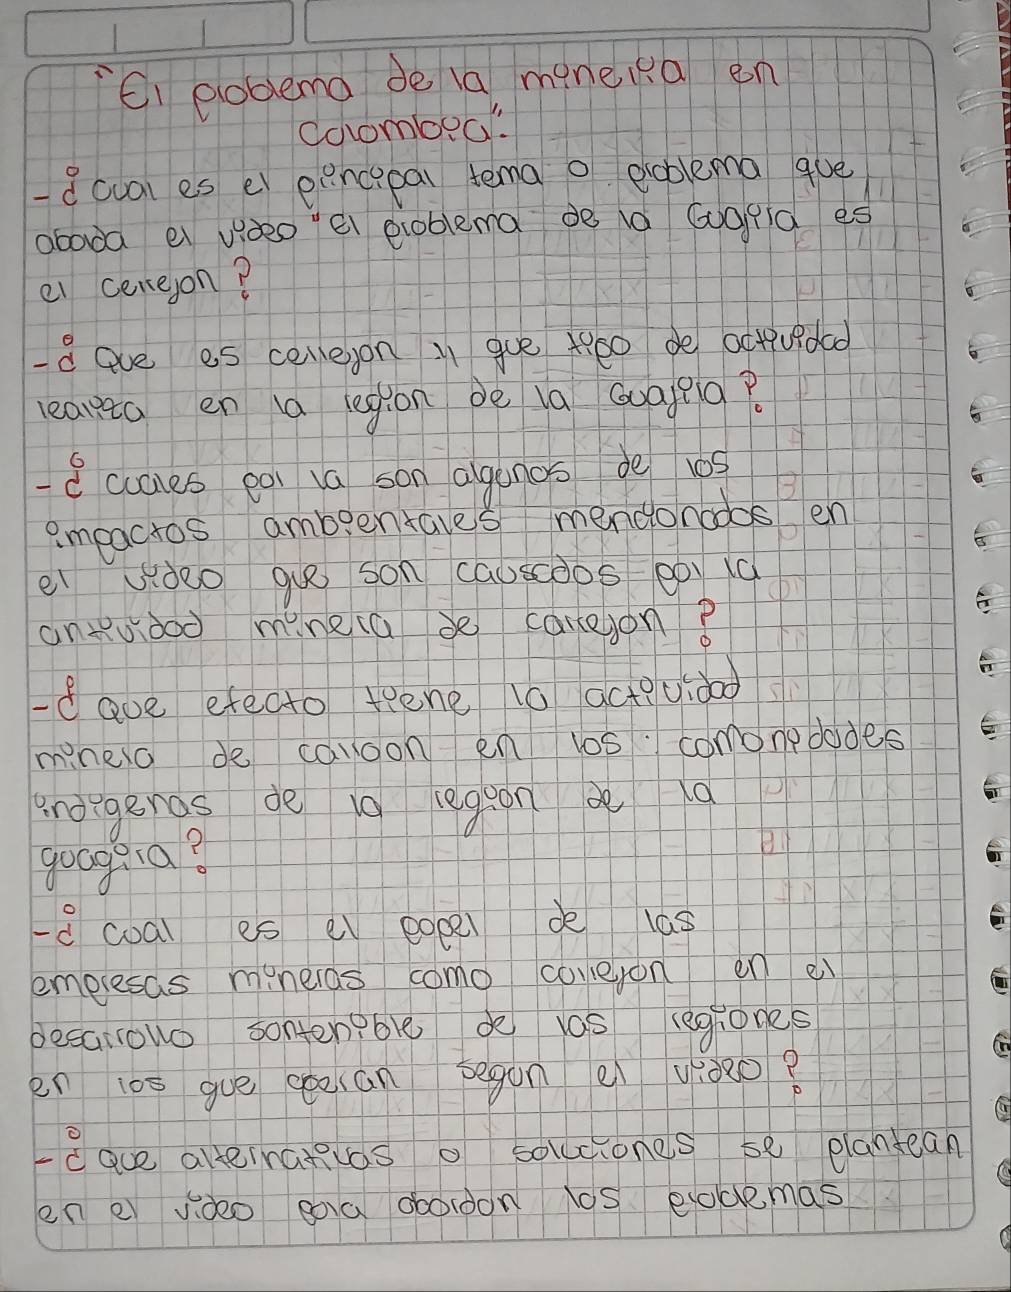 "El problema de la mineria en
Colombia".
-¿Cual es el principal tema o problema que
aborda el video "el problema de la Gugira es
el cerrejon?
-¿Que es cerrejon y que tipo de actividad
realiza en la region de la Guajira?
-¿cuales por la son algunos de los
impactos ambientales mencionados en
el video que son causados por la
antividad minera de carrejon?
-¿Que efecto tiene la actividad
minera de carroon en los comonidades
indigenas de la region de la
guagira?
-¿cual es el papel de las
empresas mineras como correjon en el
desarrollo sontenible de las regiones
en los que operan segun el video?
-¿Que alternativas o soluciones se plantean
en el video para abordon los problemas